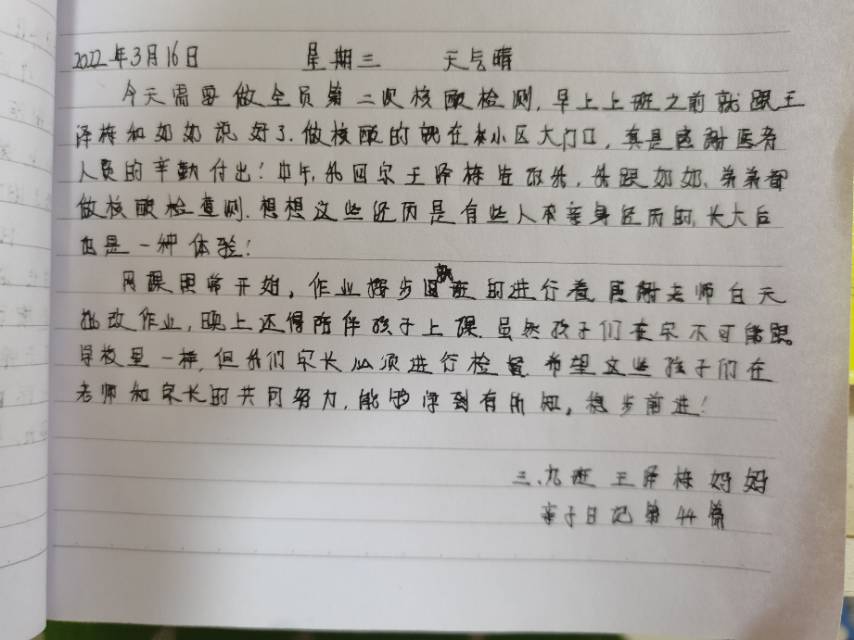 2022年3月16日 星期三 天气晴
今天需要做全员第二次核酸检测,早上上班之前就跟王
泽梅和奶奶说好了.做核酸的就在本小区大门口,真是感谢医务
人员的辛勤付出!中午,我回家王泽梅告诉我,我跟奶奶、弟弟都
做核酸检查测.想想这些经历是有些人不亲身经历的,长大后
也是一种体验!
网课照常开始,作业按步就班的进行着.感谢老师白天
批改作业,晚上还得陪伴孩子上课.虽然孩子们在家不可能跟
学校里一样,但我们家长必须进行检督.希望这些孩子们在
老师和家长的共同努力,能够学到有所知,稳步前进!
三.九班 王泽梅妈妈
亲子日记第44篇